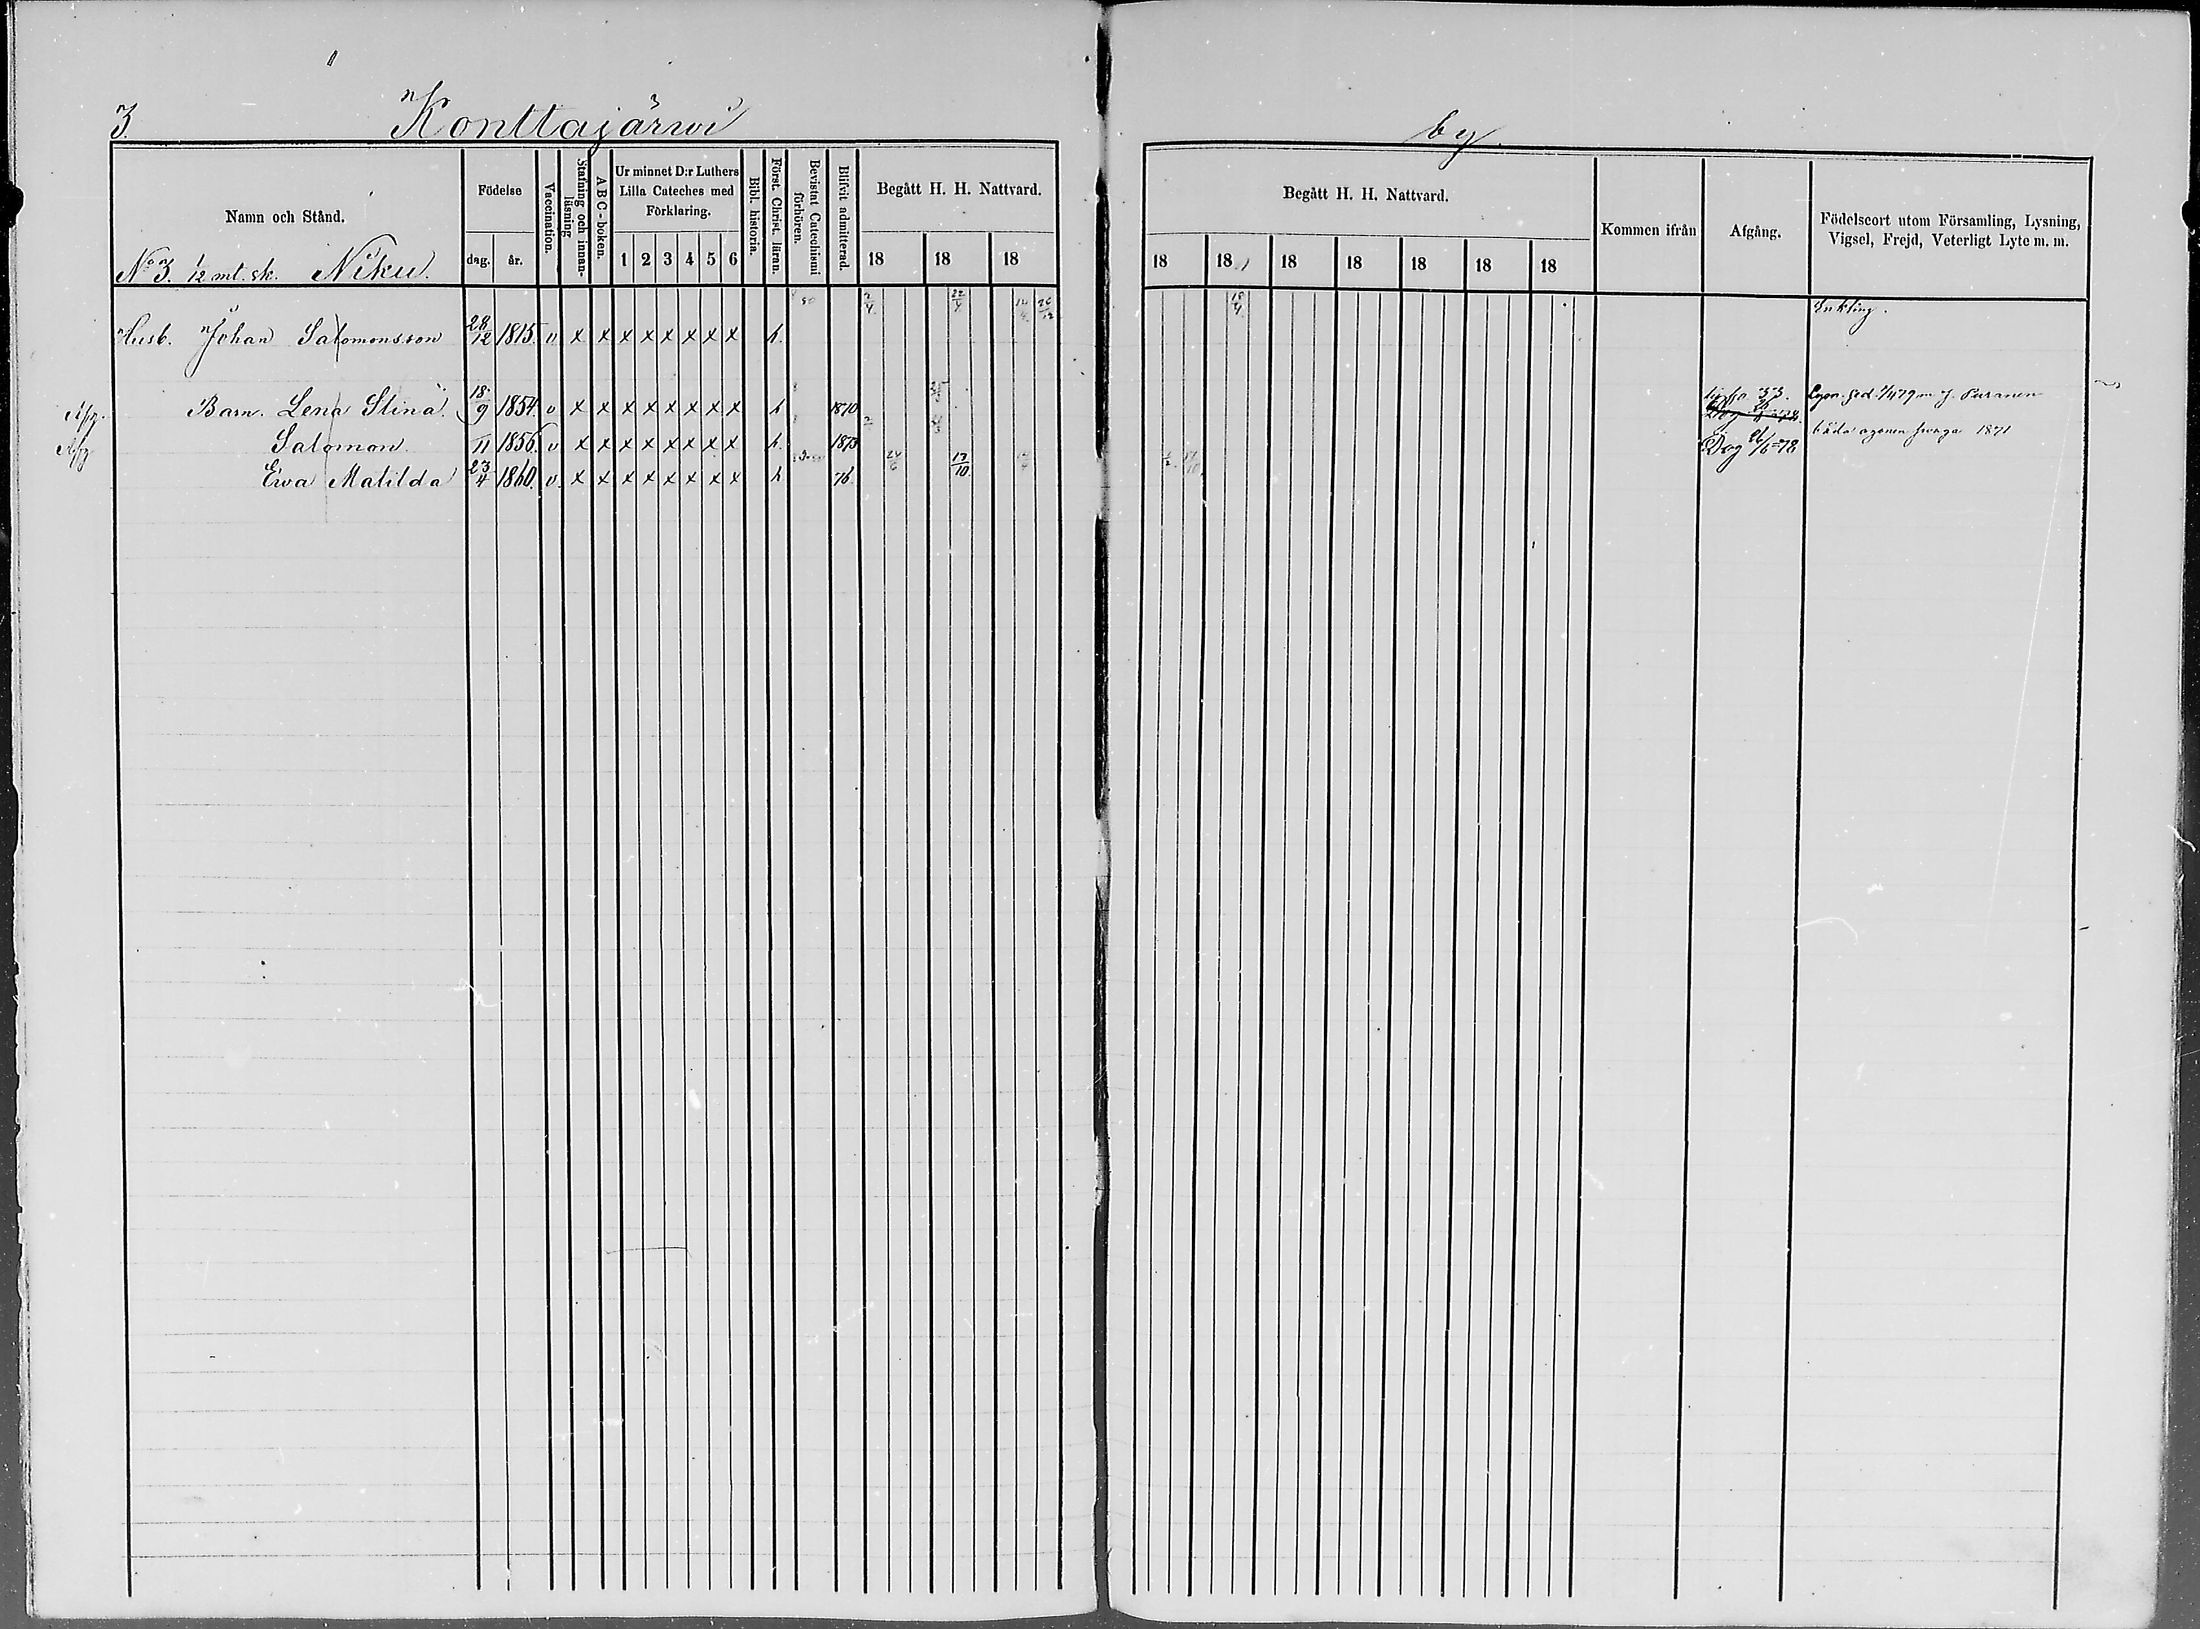 3. Konttajärwi by
Namn och Stånd.
Födelse
dag. år.
Vaccination.
Stafning och innanläsning
ABC-boken.
Ur minnet D:r Luthers Lilla Cateches med Förklaring.
1 2 3 4 5 6
Bibl. historia.
Först. Christ. läran.
Bevistat Catechismi förhören.
Blifvit admitterad.
Begått H. H. Nattvard.
18 18 18
Begått H. H. Nattvard.
18 18 18 18 18 18 18
Kommen ifrån
Afgång.
Födelseort utom Församling, Lysning, Vigsel, Frejd, Veterligt Lyte m. m.
No 3. 1/2 mt. sk. Niku.
Husb. Johan Salomonsson 28/12 1815. v x x x x x x x x h. 2/4 22/4 18/4 Enkling.
Afg. Barn. Lena Stina 18/9 1854. v x x x x x x x x h 1870 Lysn.
Afg. Salomon 11 1856. v x x x x x x x x h. 1873 Dog 26/6 78 båda ögonen 1871
Ewa Matilda 23/4 1860. v. x x x x x x x x h 76. 24/6 13/10.